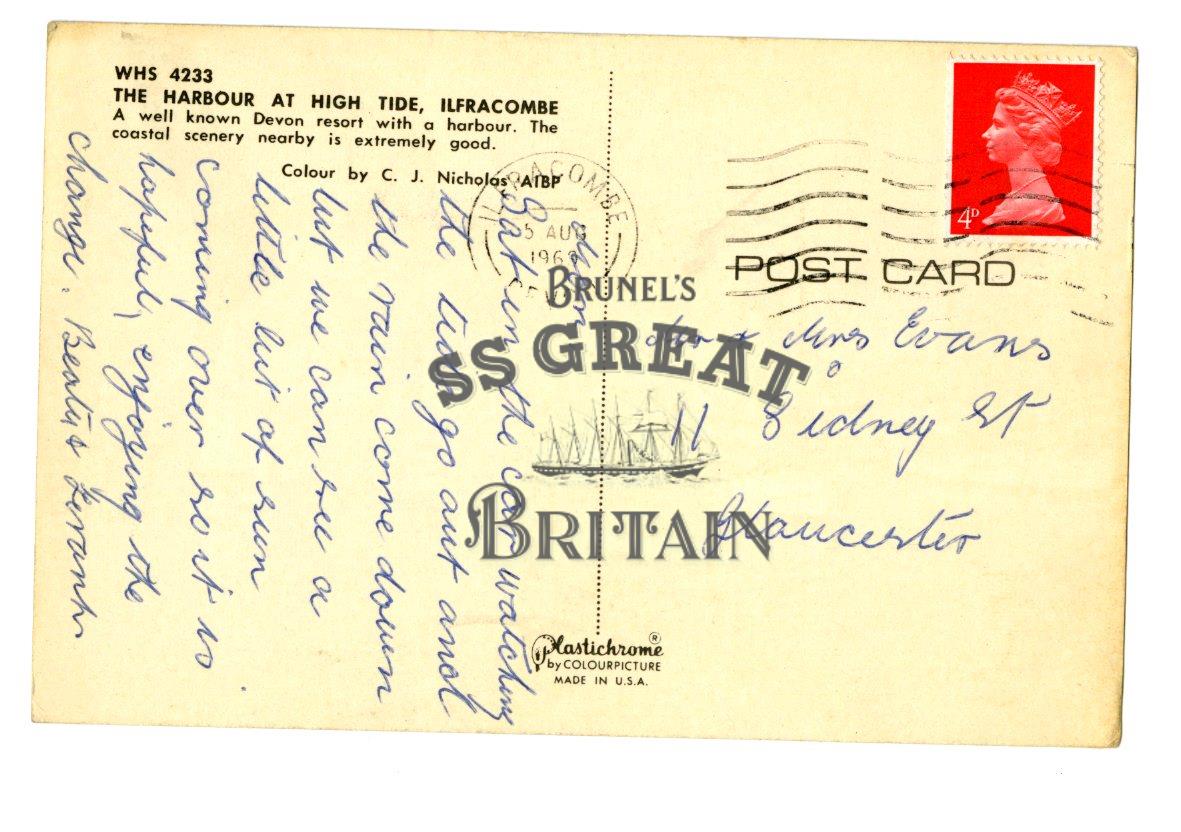 WHS 4233
THE HARBOUR AT HIGH TIDE, ILFRACOMBE
A well known Devon resort with a harbour. The
coastal scenery nearby is extremely good.
Colour by C. J. Nicholas AIBP
ILFRACOMBE
5 AUG
196
DEVON
4D
POST CARD
Mr & Mrs Evans
11 Sidney St
Gloucester
Sat in the car watching
the tide go out and
the rain come down
but we can see a
little bit of sun
coming over so it is
hopeful, enjoying the
change.
BRUNEL'S
SS GREAT
BRITAIN
Plastichrome ®
by COLOURPICTURE
MADE IN U.S.A.